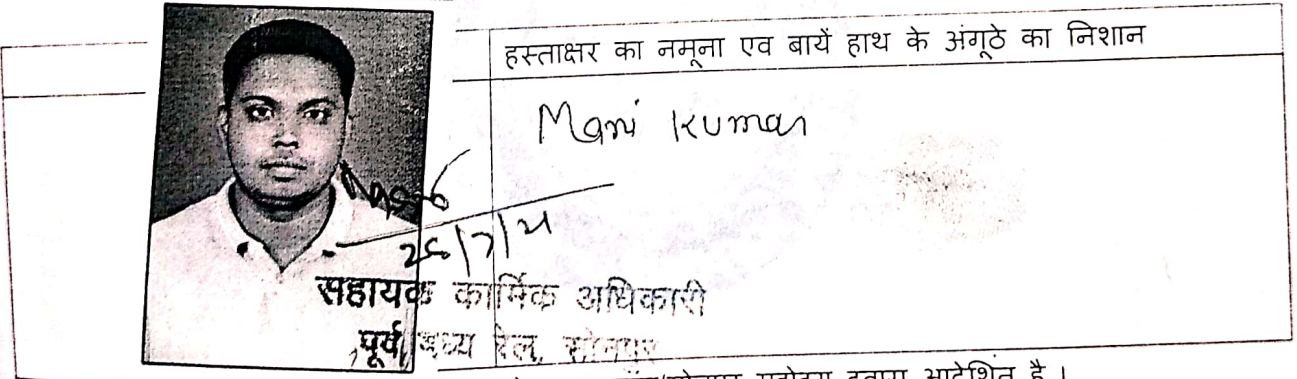 हस्ताक्षर का नमूना एव बायें हाथ के अंगूठे का निशान
Mani Kumar
सहायक कार्मिक अधिकारी
पूर्व मध्य रेल, सोनपुर
महोदय द्वारा आदेशित है ।